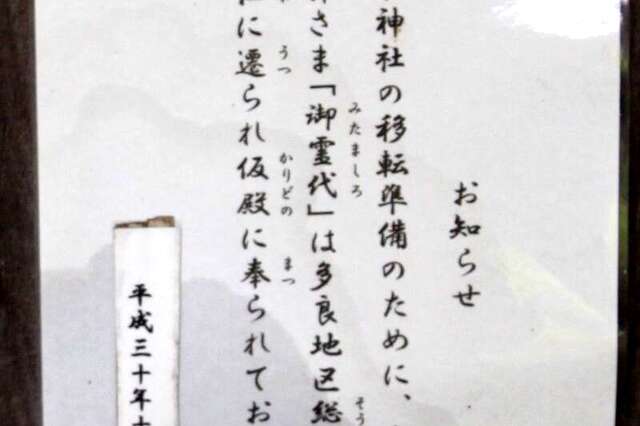 お知らせ
神社の移転準備のために、
さま「御霊代」は多良地区総
みたましろ
そう
に遷られ仮殿に奉られてお
うつ
かりどの
まつ
平成三十年十